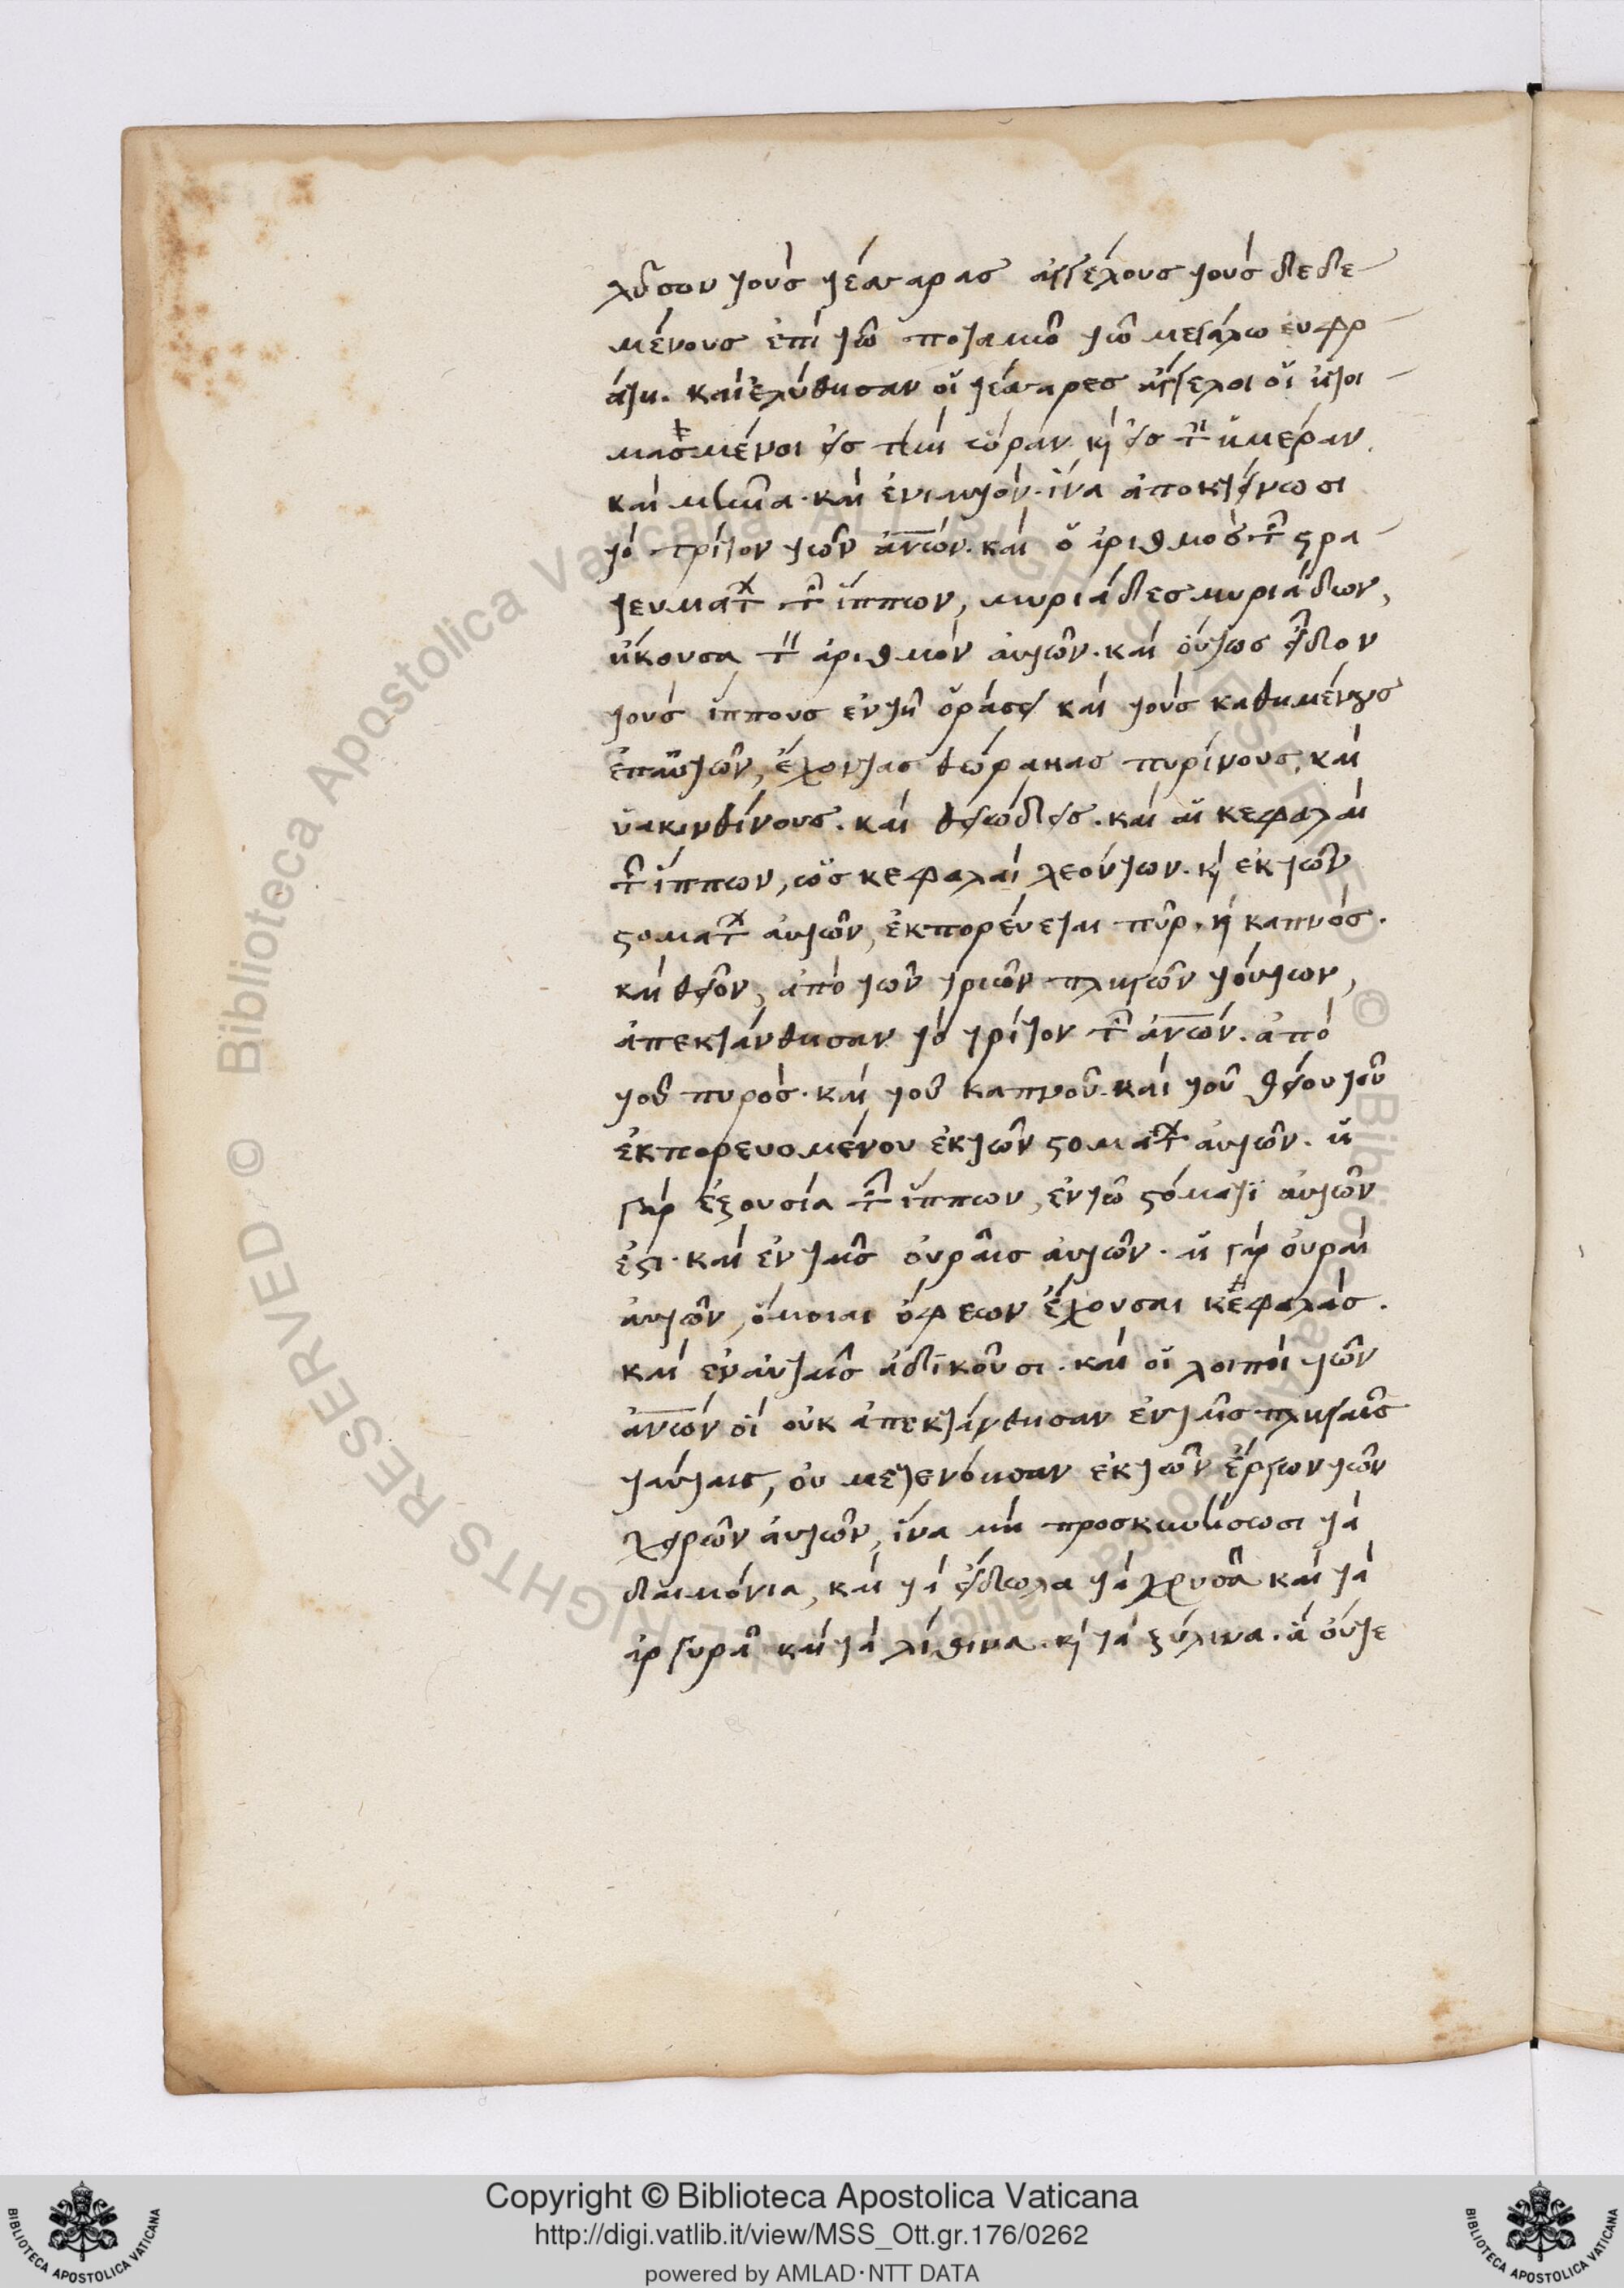 λῦσον τοὺς τέσσαρας ἀγγέλους τοὺς δεδε
μένους ἐπὶ τῶ ποταμῶ τῶ μεγάλω ἐυφρ
άτη. καὶ ἐλύθησαν οἱ τέσσαρες ἄγγελοι οἱ ἡτοι
μασμένοι εἰς τὴν ὥραν κ εἰς τ ἡμέραν
καὶ μῆνα. καὶ ἐνιαυτόν. ἵνα ἀποκτείνωσι
τὸ τρίτον τῶν ἀνων. καὶ ὁ ἀριθμὸς τ ϛρα
τευματ τ ἵππων, μυριάδες μυριάδων,
ἤκουσα τ ἀριθμὸν αὐτῶν. καὶ οὕτως εἶδον
τοὺς ἵππους ἐν τῆ ὁράσει καὶ τοὺς καθημένους
ἐπαὐτῶν, ἔχοντας θώρακας πυρίνους, καὶ
ὑακινθίνους. καὶ θειώδεις. καὶ αἱ κεφαλαὶ
τ ἵππων, ὡς κεφαλαὶ λεόντων. κ ἐκ τῶν
ϛοματ αὐτῶν, ἐκπορεύεται πῦρ. κ καπνός.
καὶ θεῖον, ἀπὸ τῶν τριῶν πληγῶν τούτων,
ἀπεκτάνθησαν τὸ τρίτον τ ἀνων. ἀπὸ
τοῦ πυρός. καὶ τοῦ καπνοῦ. καὶ τοῦ θείου τοῦ
ἐκπορευομένου ἐκ τῶν ϛοματ αὐτῶν. ἡ
γὰρ ἐξουσία τ ἵππων, ἐν τῶ ϛόματι αὐτῶν
ἐϛι. καὶ ἐν ταῖς οὐραῖς αὐτῶν. αἱ γὰρ οὐραὶ
αὐτῶν, ὅμοιαι ὄφεων ἔχουσαι κεφαλάς.
καὶ ἐν αὐταῖς ἀδικοῦσι. καὶ οἱ λοιποὶ τῶν
ἀνων οἳ οὐκ ἀπεκτάνθησαν ἐν ταῖς πληγαῖς
ταύταις, οὐ μετενόησαν ἐκ τῶν ἔργων τῶν
χειρῶν αὐτῶν, ἵνα μὴ προσκυνήσωσι τὰ
δαιμόνια, καὶ τὰ εἴδωλα τὰ χρυσᾶ καὶ τὰ
ἀργυρᾶ καὶ τὰ λίθινα. κ τὰ ξύλινα. ἃ οὔτε
Copyright © Biblioteca Apostolica Vaticana
http://digi.vatlib.it/view/MSS_Ott.gr.176/0262
powered by AMLAD·NTT DATA